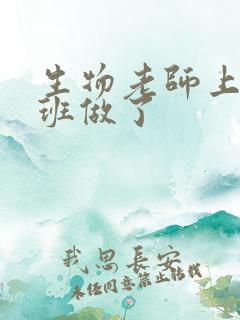 生物老師上
班做了
我思長安
未任同意禁止转载